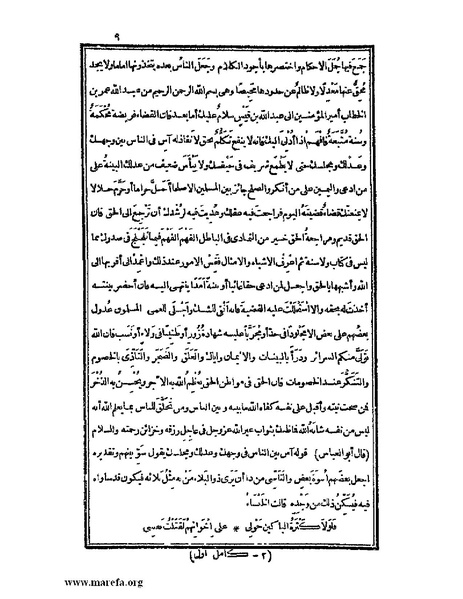 ٩
جمع فيها جُمَل الاحكام واختصرها بأجود الكلام وجَعَل الناس بعده يتخذونها اماما ولا يجد
مُحِقّ عنها مَعْدِلا ولا ظالم عن حدودها محيصا وهى بسم الله الرحمن الرحيم من عبد الله عمر بن
الخطاب أمير المؤمنين الى عبد الله بن قيس سلام عليك أما بعد فان القضاء فريضة مُحْكَمَة
وسنة مُتَّبَعة فافهم اذا أُدْلِىَ اليك فانه لا ينفع تكلُّم بحق لا نفاذ له آس فى الناس بين وجهك
وعدلك ومجلسك حتى لا يطمَع شريف فى حَيْفك ولا ييأس ضعيف من عدلك البينة على
من ادعى واليمين على من أنكر والصلح جائز بين المسلمين الا صلحا أحل حراما أو حرم حلالا
لا يمنعنك قضاء قضيته اليوم فراجعت فيه عقلك وهُديت فيه لرشدك أن ترجع الى الحق فان
الحق قديم ومراجعة الحق خير من التمادى فى الباطل الفهم الفهم فيما تلجلج فى صدرك مما
ليس فى كتاب ولا سنة ثم اعرف الاشباه والامثال فقس الامور عند ذلك واعمد الى أقربها الى
الله وأشبهها بالحق واجعل لمن ادعى حقا غائبا أو بينة أمدا ينتهى اليه فان أحضر بينته
أخذت له بحقه والا استحللت عليه القضية فانه أنفى للشك وأجلى للعمى المسلمون عدول
بعضهم على بعض الا مجلودا فى حد أو مجربا عليه شهادة زور أو ظنينا فى ولاء أو نسب فان الله
تولى منكم السرائر ودرأ بالبينات والايمان واياك والغلق والضجر والتأذى بالخصوم
والتنكر عند الخصومات فان الحق فى مواطن الحق يعظم الله به الاجر ويحسن به الذخر
فمن صحت نيته وأقبل على نفسه كفاه الله ما بينه وبين الناس ومن تخلق للناس بما يعلم الله أنه
ليس من نفسه شانه الله فما ظنك بثواب غير الله عز وجل فى عاجل رزقه وخزائن رحمته والسلام
(قال أبو العباس) قوله آس بين الناس فى وجهك وعدلك ومجلسك يقول سوّ بينهم وتقديره
اجعل بعضهم أسوة بعض والتأسى من ذا أن يرى ذو البلاء من به مثل بلائه فيكون قد ساواه
فيه فيسكن ذلك من وجده قالت الخنساء
فلولا كثرة الباكين حولى * على اخوانهم لقتلت نفسى
(٢ - كامل اول)
www.marefa.org